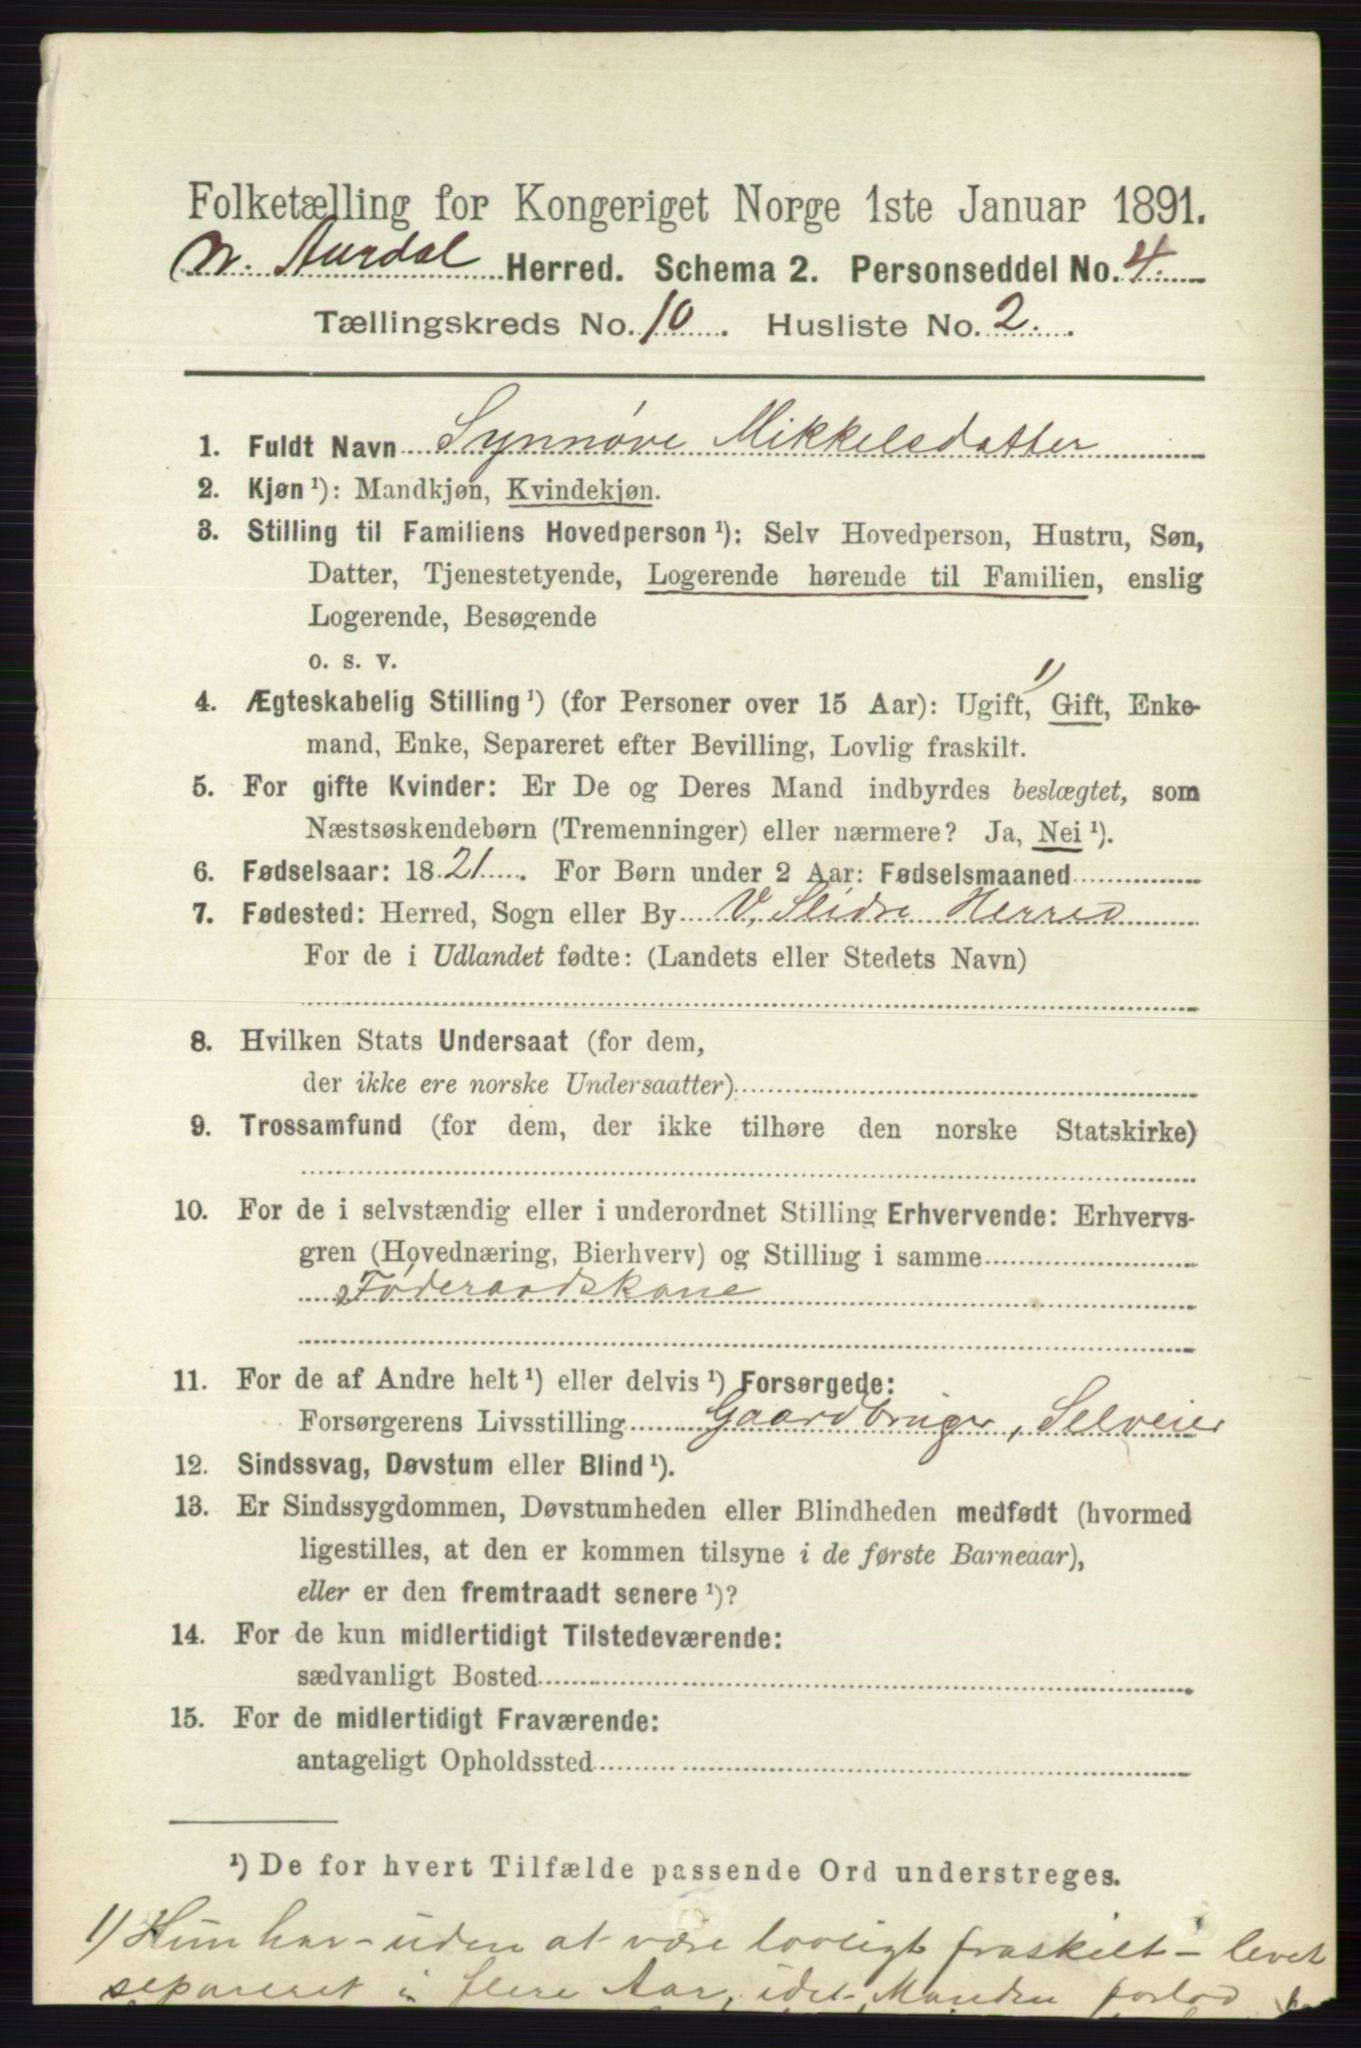 Folketælling for Kongeriget Norge 1ste Januar 1891.
N. Aurdal Herred. Schema 2. Personseddel No. 4.
Tællingskreds No. 10. Husliste No. 2.
1. Fuldt Navn Synnøve Mikkelsdatter
2. Kjøn ¹): Mandkjøn, Kvindekjøn.
3. Stilling til Familiens Hovedperson ¹): Selv Hovedperson, Hustru, Søn,
Datter, Tjenestetyende, Logerende hørende til Familien, enslig
Logerende, Besøgende
o. s. v.
1)
4. Ægteskabelig Stilling ¹) (for Personer over 15 Aar): Ugift, Gift, Enke-
mand, Enke, Separeret efter Bevilling, Lovlig fraskilt.
5. For gifte Kvinder: Er De og Deres Mand indbyrdes beslægtet, som
Næstsøskendebørn (Tremenninger) eller nærmere? Ja, Nei ¹).
6. Fødselsaar: 1821. For Børn under 2 Aar: Fødselsmaaned
7. Fødested: Herred, Sogn eller By V. Slidre Herred
For de i Udlandet fødte: (Landets eller Stedets Navn)
8. Hvilken Stats Undersaat (for dem,
der ikke ere norske Undersaatter)
9. Trossamfund (for dem, der ikke tilhøre den norske Statskirke)
10. For de i selvstændig eller i underordnet Stilling Erhvervende: Erhvervs-
gren (Hovednæring, Bierhverv) og Stilling i samme
Føderaadskone
11. For de af Andre helt ¹) eller delvis ¹) Forsørgede:
Forsørgerens Livsstilling Gaardbruger, Selveier
12. Sindssvag, Døvstum eller Blind ¹).
13. Er Sindssygdommen, Døvstumheden eller Blindheden medfødt (hvormed
ligestilles, at den er kommen tilsyne i de første Barneaar),
eller er den fremtraadt senere ¹)?
14. For de kun midlertidigt Tilstedeværende:
sædvanligt Bosted
15. For de midlertidigt Fraværende:
antageligt Opholdssted
¹) De for hvert Tilfælde passende Ord understreges.
1) Hun har – uden at være lovligt fraskilt – levet
separeret i flere Aar, idet Manden forlod